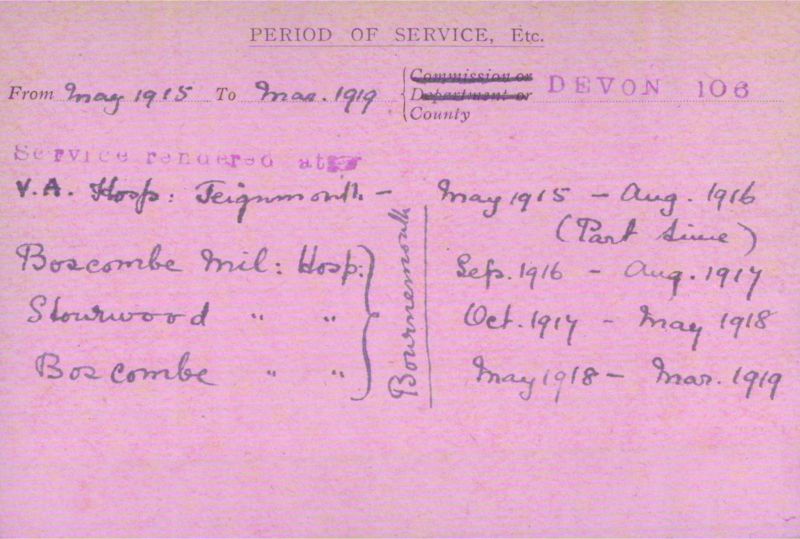 PERIOD OF SERVICE, Etc.
From May 1915 To Mar. 1919
Commission or
Department or
County
DEVON 106
Service rendered at
V.A. Hosp: Teignmouth - May 1915 - Aug. 1916
(Part time)
Boscombe Mil: Hosp: Sep. 1916 - Aug. 1917
Stourwood " " Oct. 1917 - May 1918
Boscombe " " May 1918 - Mar. 1919
Bournemouth